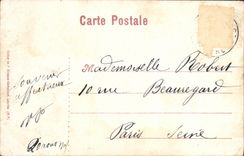 Carte Postale
Souvenir
affectueux
Mademoiselle Robert
10 rue Beauregard
Paris Seine